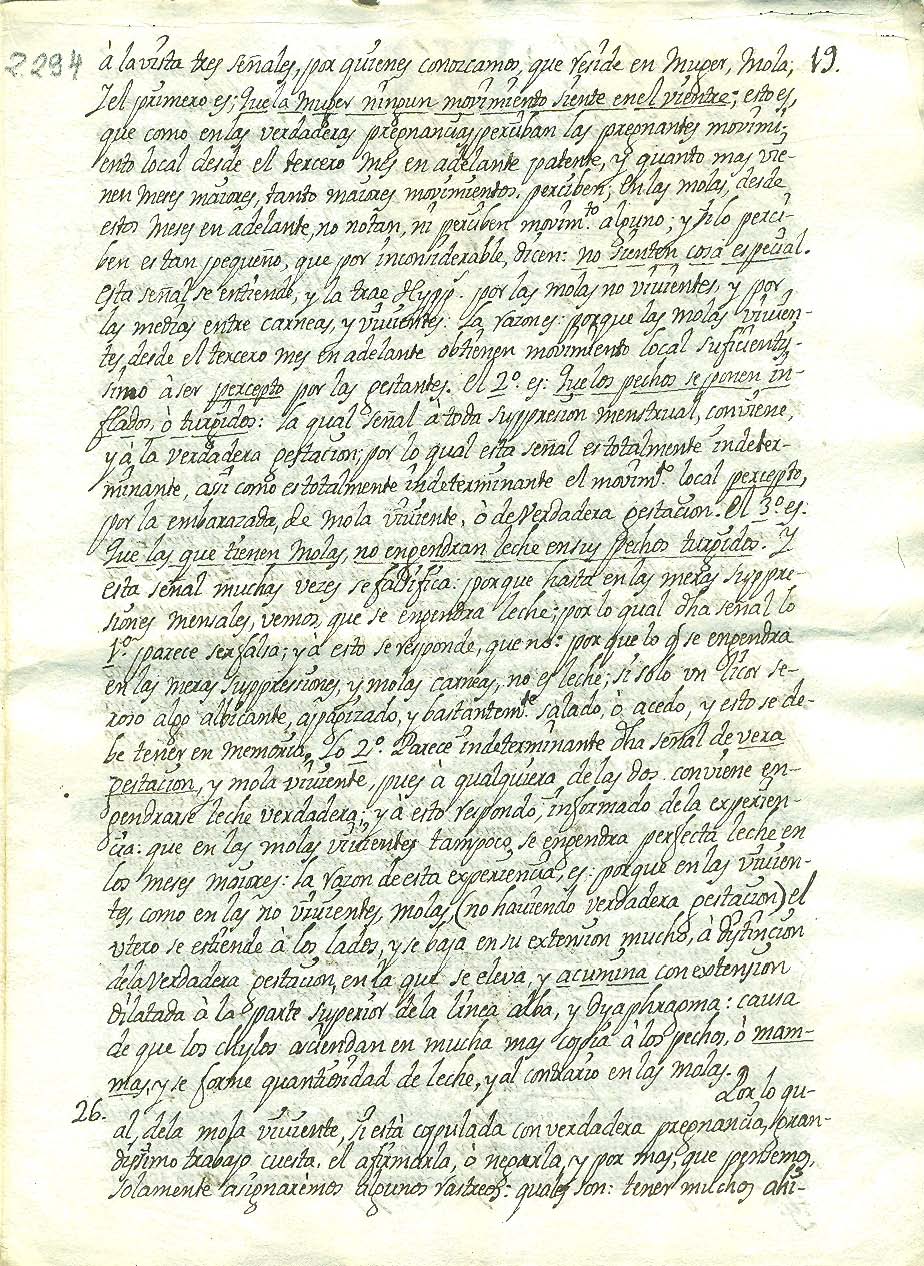 2.294
19.
à la vista tres señales, por quienes conozcamos, que reside en Muger, Mola;
Y el primero es; Que la Muger ningun movimiento siente en el vientre; esto es,
que como en las verdaderas pregnancias perciban las pregnantes movimi-
ento local desde el tercero mes en adelante patente, y quanto mas vie-
nen meses maiores, tanto maiores movimientos perciben; En las molas, desde
estos meses en adelante, no notan, ni perciben movim.to alguno; y si lo perci-
ben es tan pequeño, que por inconsiderable, dicen: no sienten cosa especial.
Esta señal se entiende, y la trae Hypp. por las molas no vivientes, y por
las medias entre carneas, y vivientes: La razon es: porque las molas vivien-
tes, desde el tercero mes en adelante obtienen movimiento local suficientis-
simo à ser percepto por las gestantes. El 2.o es: Que los pechos se ponen in-
flados, ò turgidos: la qual señal à toda suppresion menstrual, conviene,
y à la verdadera gestacion; por lo qual esta señal es totalmente indeter-
minante, asi como es totalmente indeterminante el movim.to local percepto,
por la embarazada, de mola viviente, ò de verdadera gestacion. El 3.o es:
Que las que tienen Molas, no engendran leche en sus pechos turgidos. Y
esta señal muchas vezes se falsifica: porque hasta en las meras suppre-
siones mensales, vemos, que se engendra leche; por lo qual dha señal lo
1.o parece ser falsa; y à esto se responde, que no: por que lo q se engendra
en las meras suppressiones, y molas carneas, no es leche; si solo un licor se-
roso algo albicante, y bastantem.te salado, ò acedo, y esto se de-
be tener en memoria. Lo 2.o Parece indeterminante dha señal de vera
gestacion, y mola viviente, pues à qualquiera de las dos conviene en-
gendrarse leche verdadera; y à esto respondo, informado de la experien-
cia: que en las molas vivientes tampoco se engendra perfecta leche en
los meses maiores: la razon de esta experiencia, es: porque en las vivien-
tes, como en las no vivientes, molas, (no haviendo verdadera gestacion) el
utero se estiende à los lados, y se baja en su extension mucho, à distincion
de la verdadera gestacion, en la que se eleva, y acumina con extension
dilatada à la parte superior de la linea alba, y Dyaphragma: causa
de que los chylos asciendan en mucha mas copia à los pechos, ò mam-
mas, y se forme quantiosidad de leche, y al contrario en las molas.
26.
Por lo qu-
al, de la mola viviente, si està copulada con verdadera pregnancia, gran-
dissimo trabajo cuesta, el afirmarla, ò negarla, y por mas, que pensemos,
solamente asignarèmos algunos rastreos: quales son: tener muchos ahi-